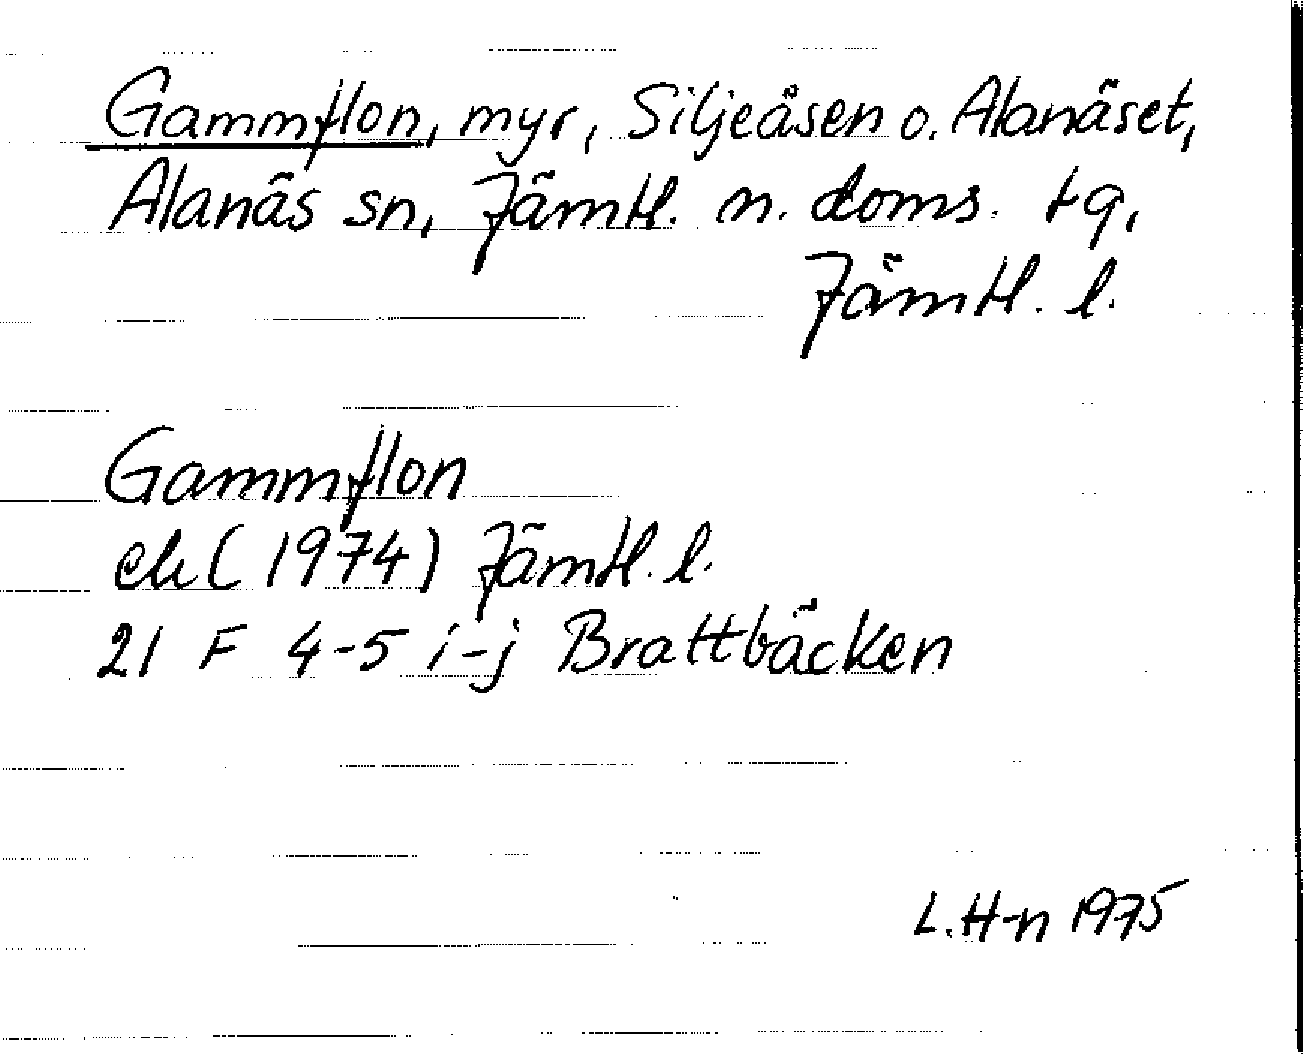 Gammflon, myr, Siljeåsen o. Alanäset,
Alanäs sn, Jämtl. n. doms. tg,
Jämtl. l.
Gammflon
ek (1974) Jämtl. l.
21 F 4-5 i-j Brattbäcken
L. H-n 1975